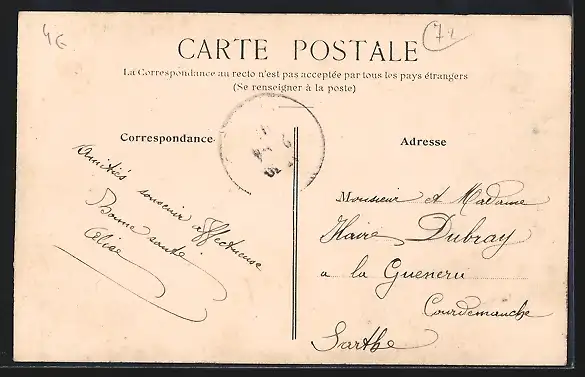 4€
72
CARTE POSTALE
La Correspondance au recto n'est pas acceptée par tous les pays étrangers
(Se renseigner à la poste)
Correspondance
Amitiés souvenir affectueuse
Bonne santé
Alise
Adresse
Monsieur et Madame
Haire Dubray
a la Gueneru
Courdemanche
Sarthe